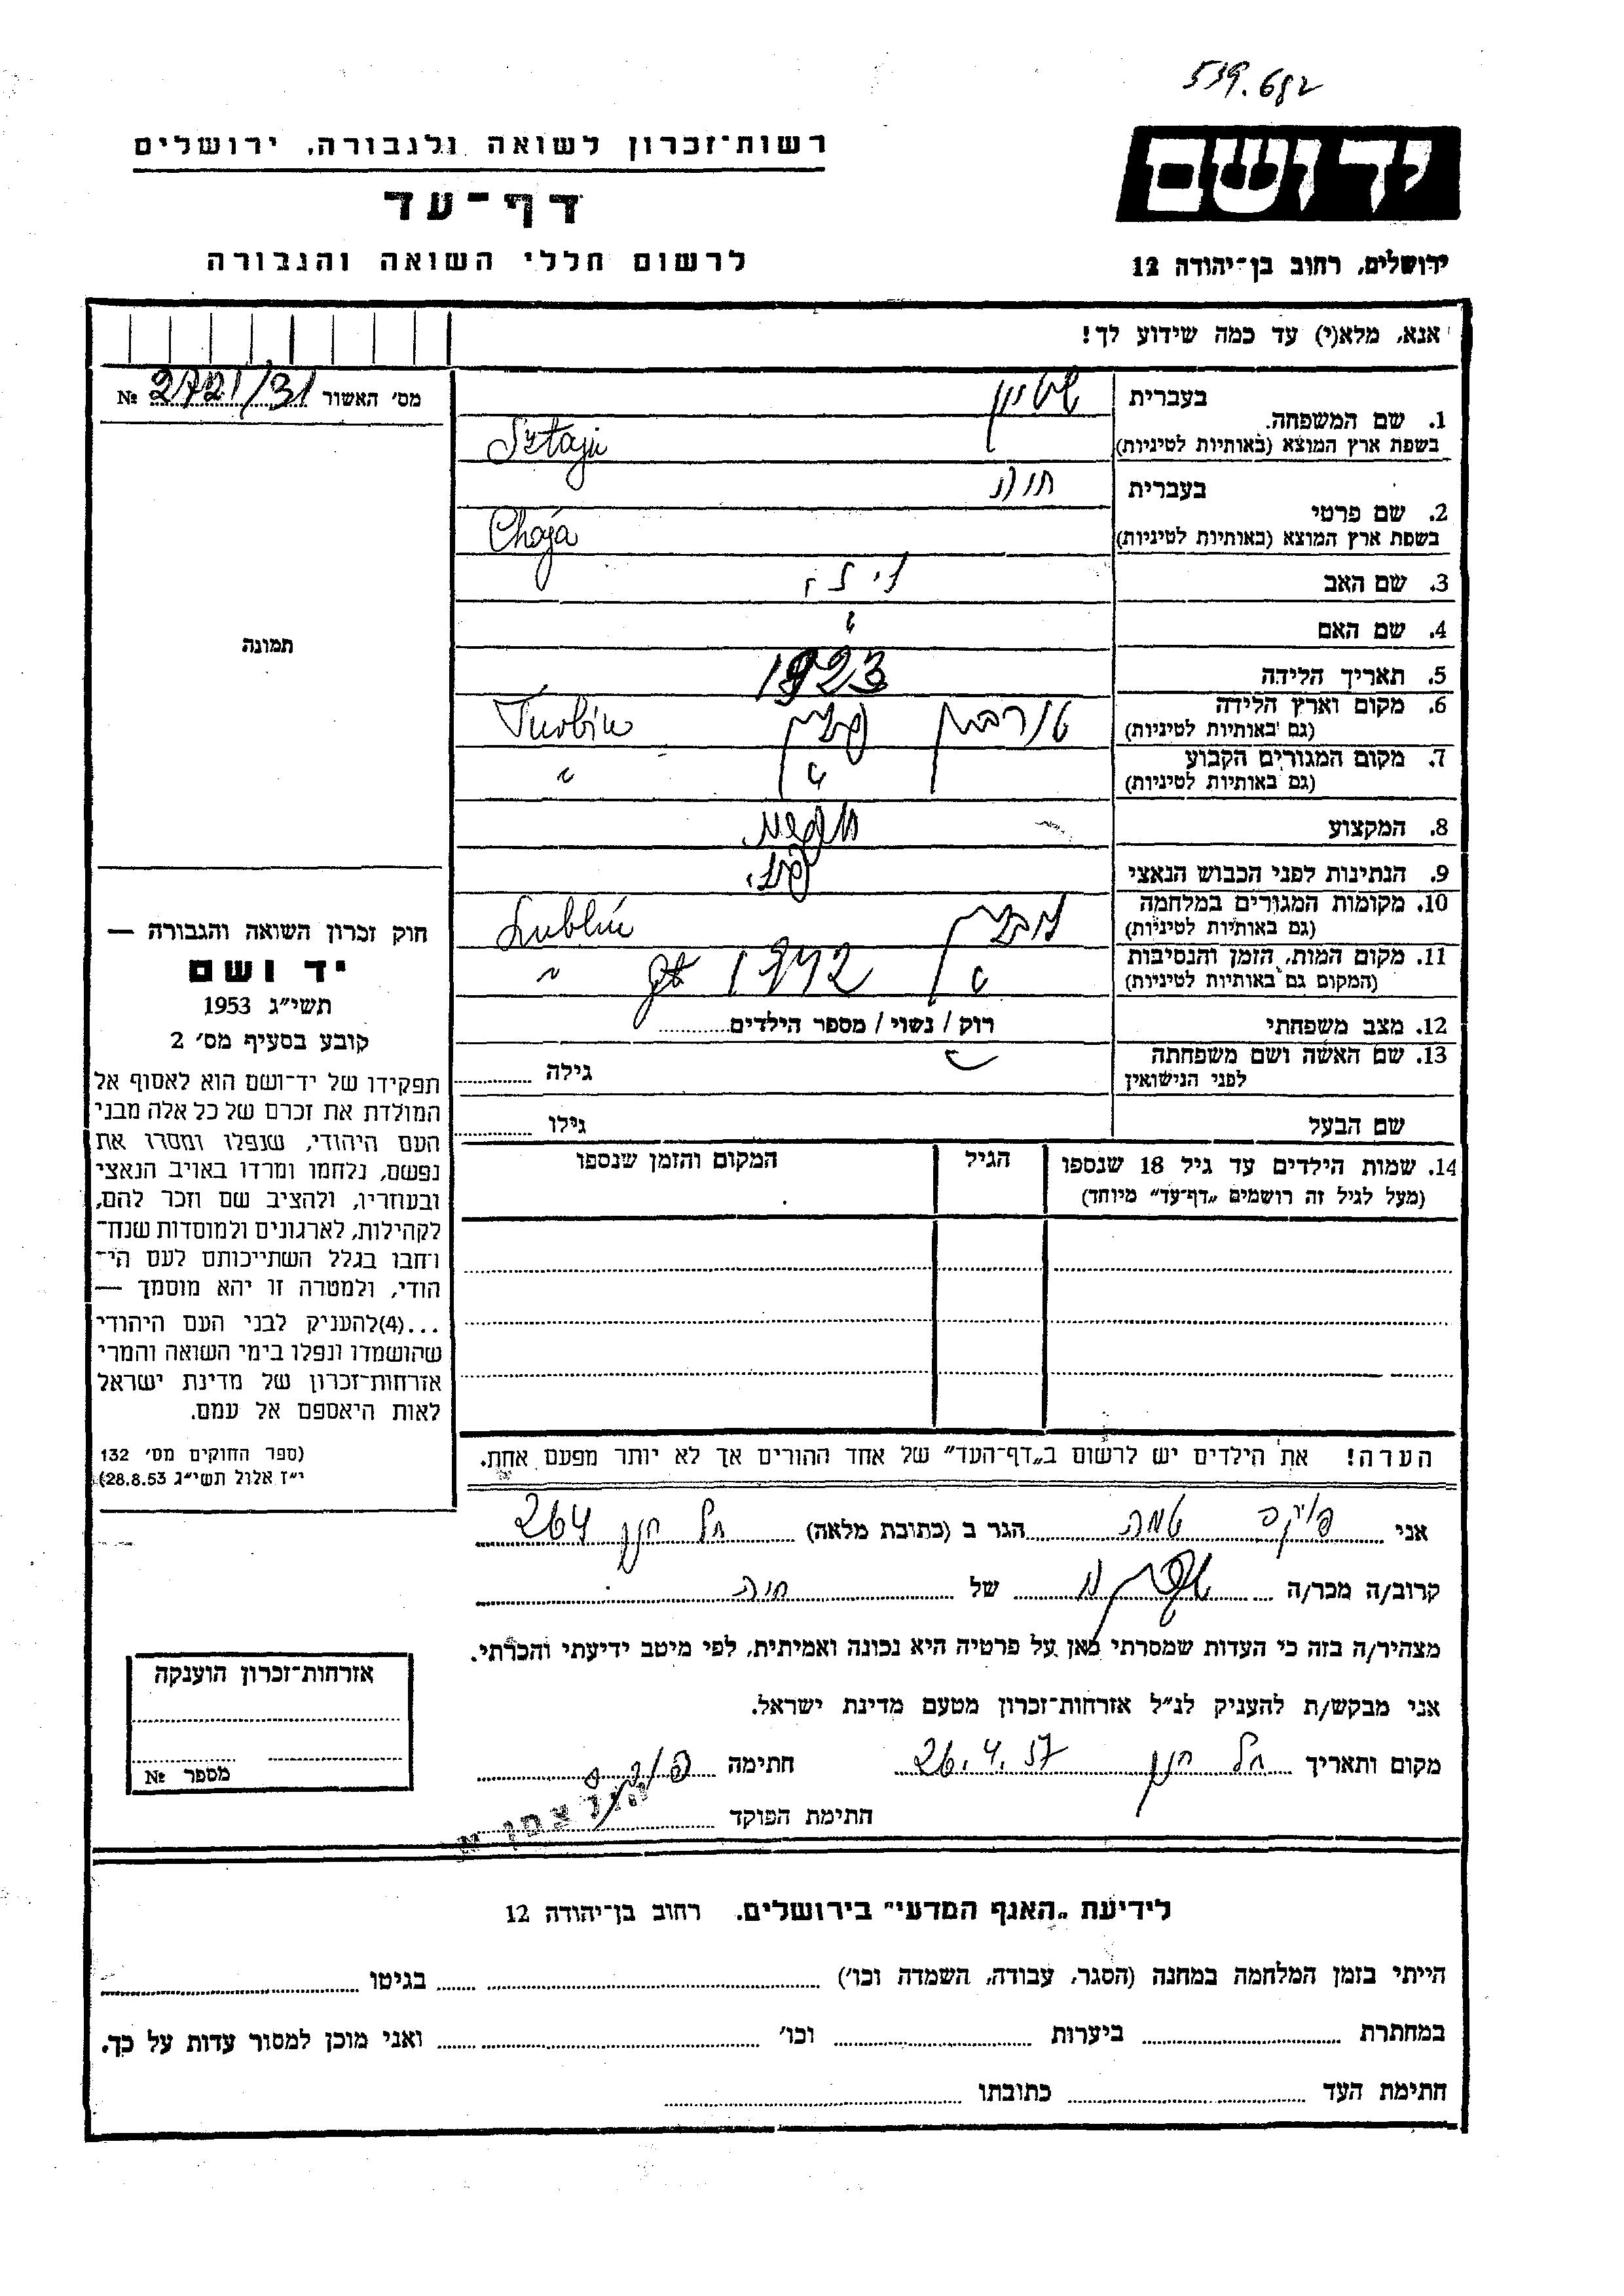 539.682
יד ושם
ירושלים, רחוב בן־יהודה 12
רשות־זכרון לשואה ולגבורה, ירושלים
דף־עד
לרשום חללי השואה והגבורה
אנא, מלא(י) עד כמה שידוע לך!
מס׳ האשור № 2721/31
1. שם המשפחה.
בעברית שטיין
בשפת ארץ המוצא (באותיות לטיניות) Sztajn
2. שם פרטי
בעברית חוה
בשפת ארץ המוצא (באותיות לטיניות) Chaja
3. שם האב
4. שם האם "
5. תאריך הלידה 1923
6. מקום וארץ הלידה
(גם באותיות לטיניות) טורבין פולין Turbin
7. מקום המגורים הקבוע
(גם באותיות לטיניות) " "
8. המקצוע
9. הנתינות לפני הכבוש הנאצי פול.
10. מקומות המגורים במלחמה
(גם באותיות לטיניות) לובלין Lublin
11. מקום המות, הזמן והנסיבות
(המקום גם באותיות לטיניות) " 1942 "
12. מצב משפחתי רוק / נשוי / מספר הילדים
13. שם האשה ושם משפחתה
לפני הנישואין גילה
שם הבעל גילו
14. שמות הילדים עד גיל 18 שנספו
(מעל לגיל זה רושמים „דף־עד״ מיוחד)
הגיל
המקום והזמן שנספו
הערה! את הילדים יש לרשום ב„דף־העד״ של אחד ההורים אך לא יותר מפעם אחת.
תמונה
חוק זכרון השואה והגבורה —
יד ושם
תשי״ג 1953
קובע בסעיף מס׳ 2
תפקידו של יד־ושם הוא לאסוף אל
המולדת את זכרם של כל אלה מבני
העם היהודי, שנפלו ומסרו את
נפשם, נלחמו ומרדו באויב הנאצי
ובעוזריו, ולהציב שם וזכר להם,
לקהילות, לארגונים ולמוסדות שנח־
רחבו בגלל השתייכותם לעם הי־
הודי, ולמטרה זו יהא מוסמך —
...(4)להעניק לבני העם היהודי
שהושמדו ונפלו בימי השואה והמרי
אזרחות־זכרון של מדינת ישראל
לאות היאספם אל עמם.
(ספר החוקים מס׳ 132
י״ז אלול תשי״ג 28.8.53)
אני הגר ב (כתובת מלאה) תל חנן 264
קרוב/ה מכר/ה של חוה
מצהיר/ה בזה כי העדות שמסרתי כאן על פרטיה היא נכונה ואמיתית, לפי מיטב ידיעתי והכרתי.
אני מבקש/ת להעניק לנ״ל אזרחות־זכרון מטעם מדינת ישראל.
מקום ותאריך תל חנן 26.4.57 חתימה
חתימת הפוקד
אזרחות־זכרון הוענקה
מספר №
לידיעת „האגף המדעי״ בירושלים. רחוב בן־יהודה 12
הייתי בזמן המלחמה במחנה (הסגר, עבודה, השמדה וכו׳) בגיטו
במחתרת ביערות וכו׳ ואני מוכן למסור עדות על כך.
חתימת העד כתובתו